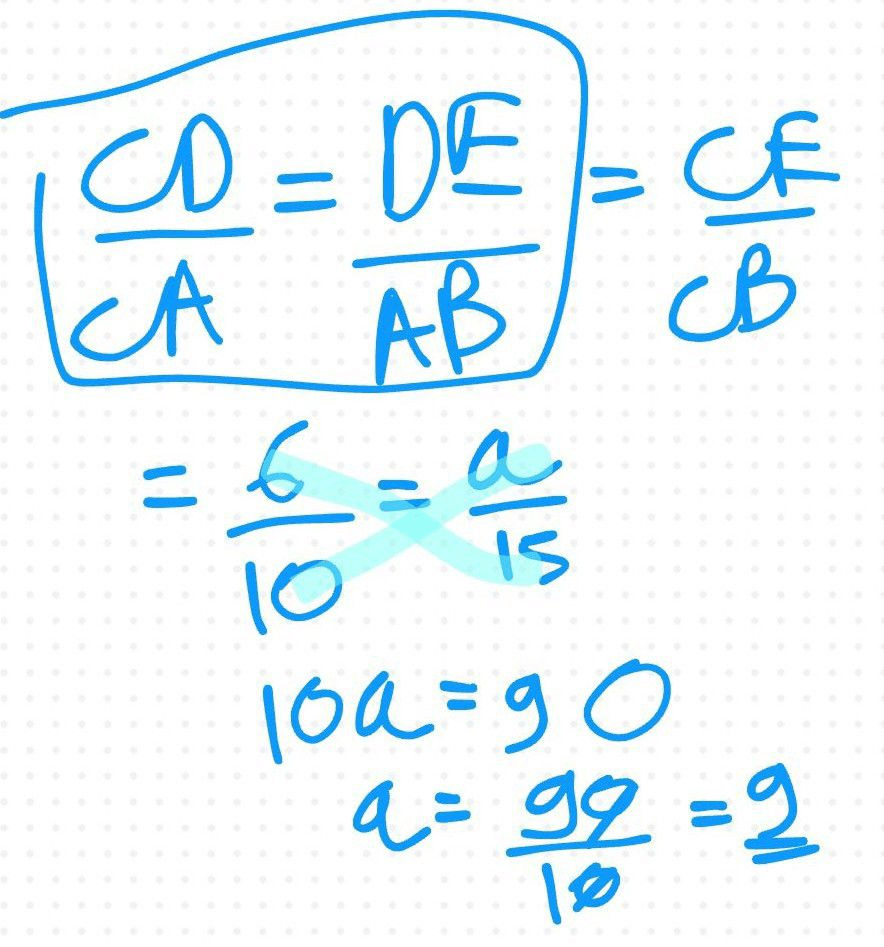 CD/CA = DE/AB = CE/CB
= 6/10 = a/15
10a = 90
a = 90/10 = 9